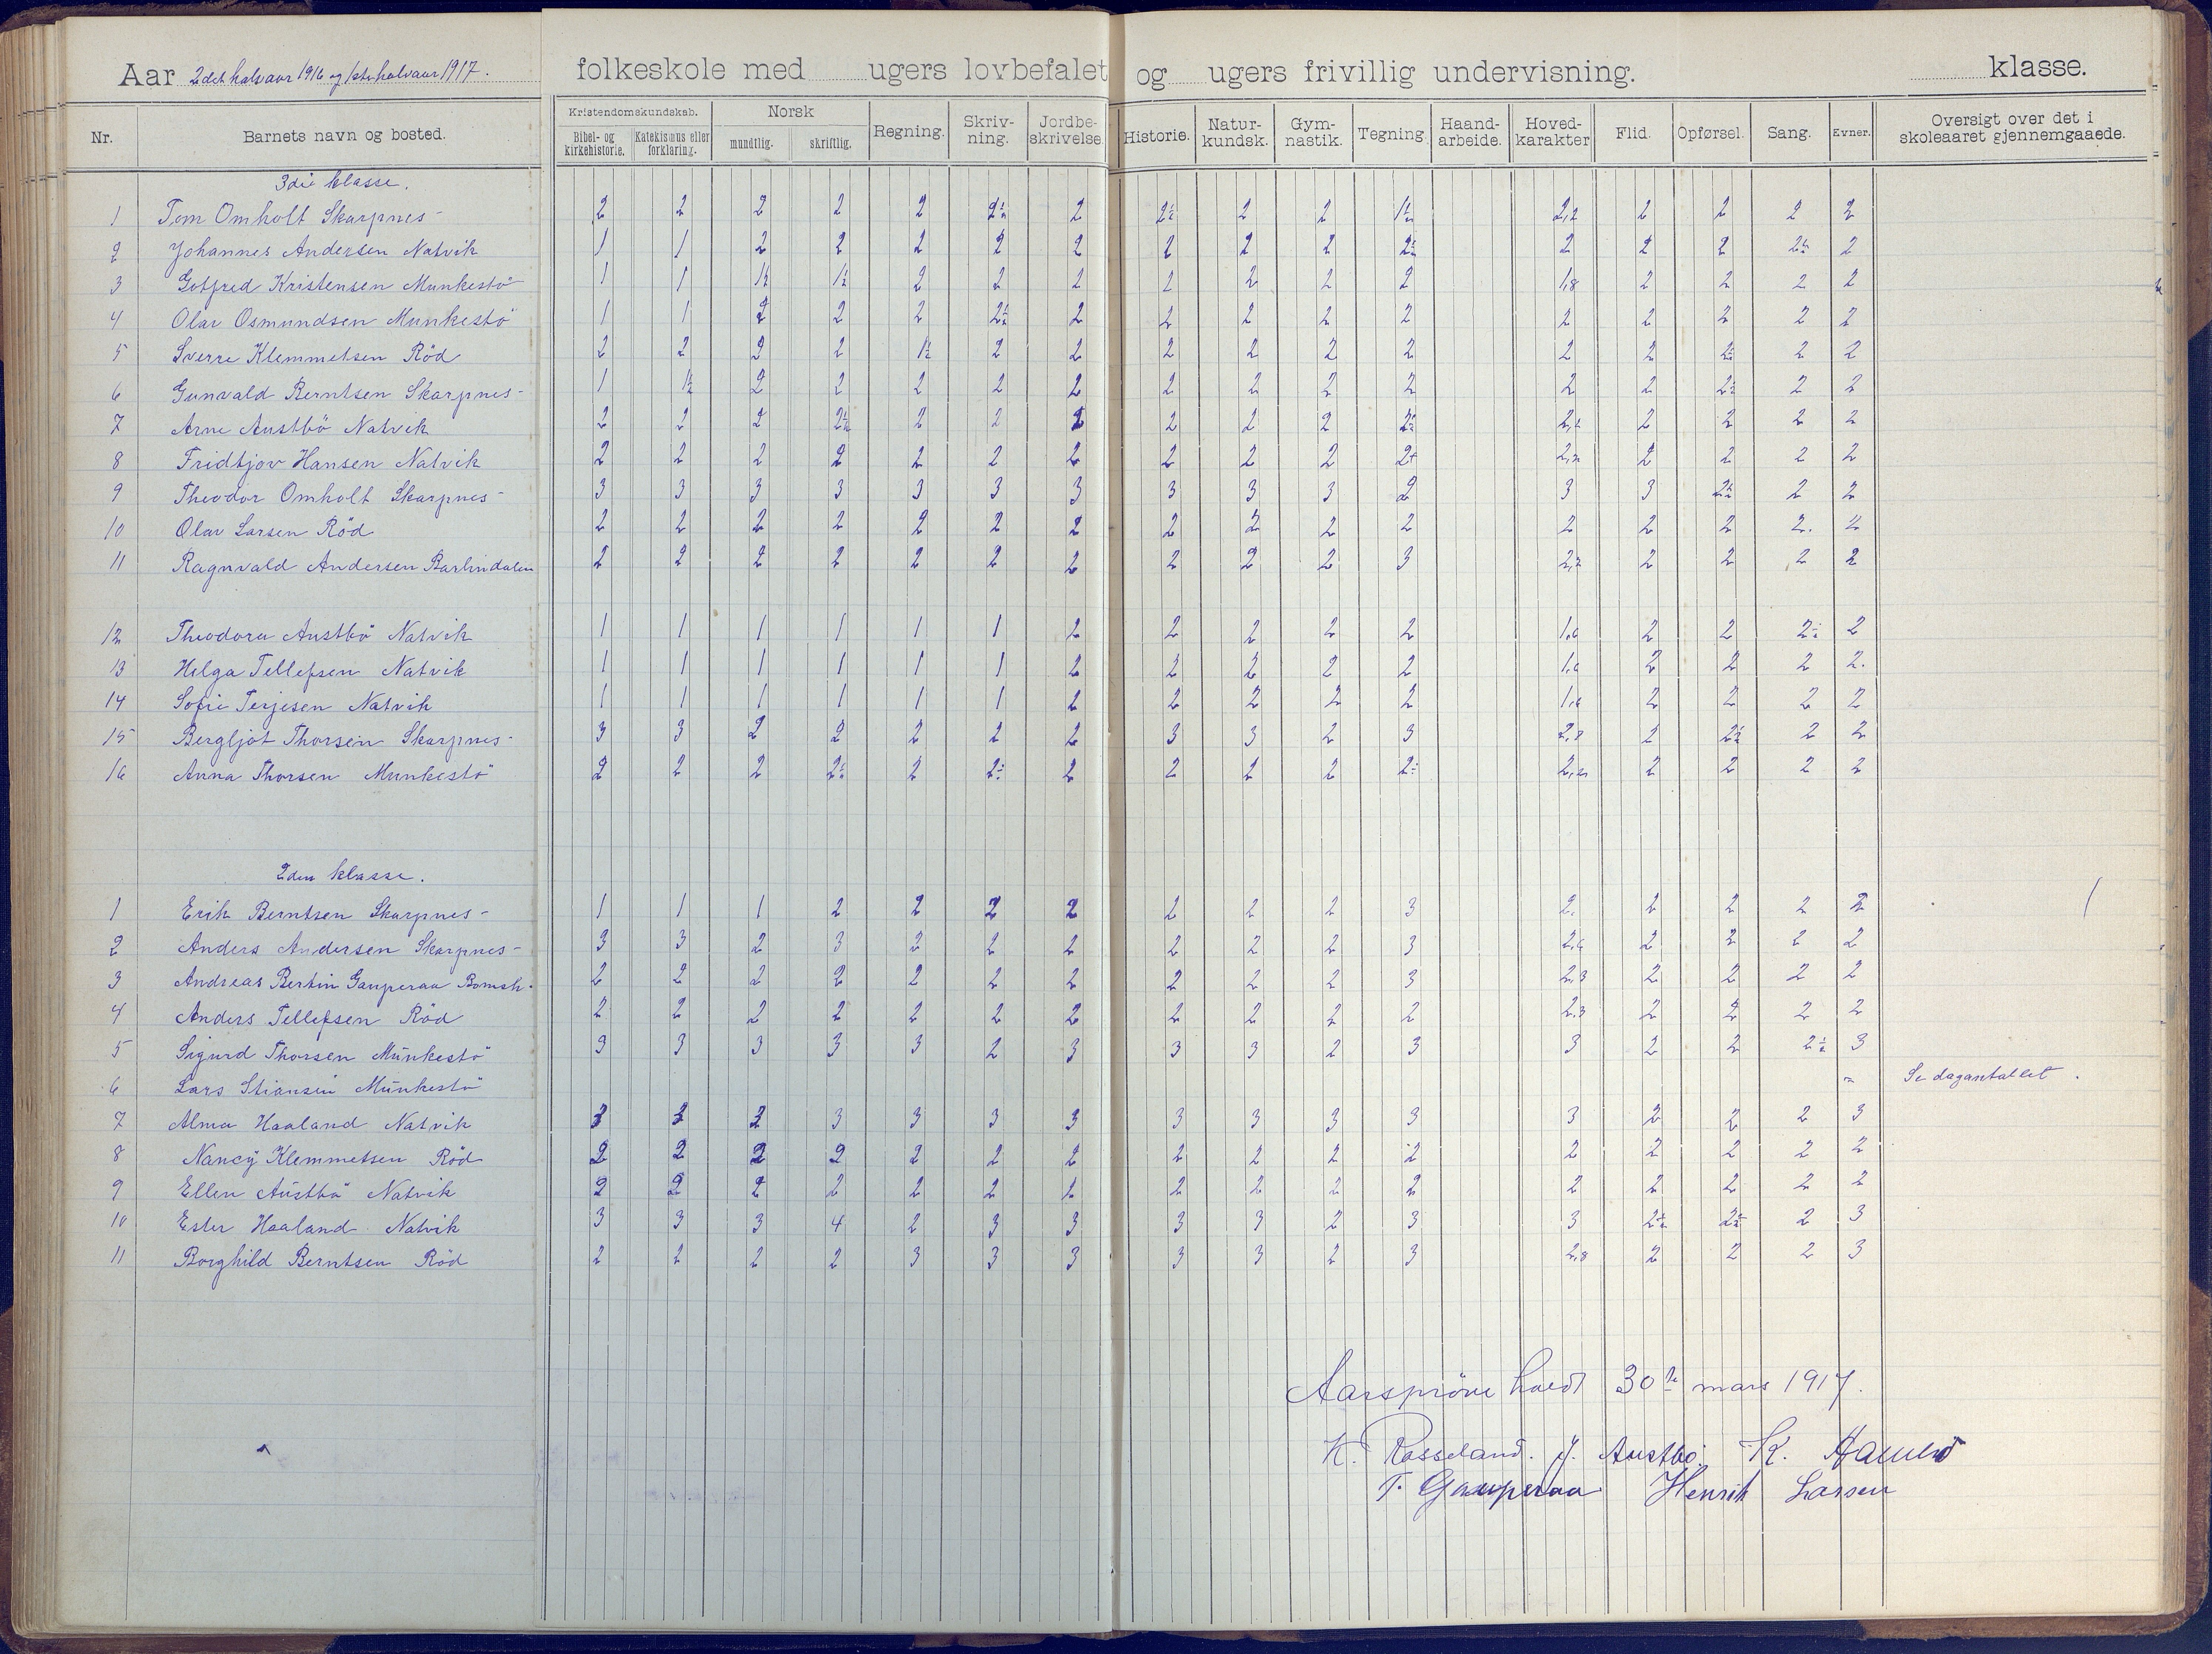 Aar 2det halvaar 1916 og 1ste halvaar 1917. folkeskole med ugers lovbefalet og ugers frivillig undervisning. klasse.
Nr. Barnets navn og bosted. Kristendomskundskab. Bibel- og kirkehistorie. Katekismus eller forklaring. Norsk mundtlig. skriftlig. Regning. Skriv-ning. Jordbe-skrivelse. Historie. Natur-kundsk. Gym-nastik. Tegning. Haand-arbeide. Hoved-karakter Flid. Opførsel. Sang. Evner. Oversigt over det i skoleaaret gjennemgaaede.
3die klasse.
1 Tom Omholt Skarpnes 2 2 2 2 2 2÷ 2 2÷ 2 2 1½ 2,2 2 2 2 2
2 Johannes Andersen Natvik 1 1 2 2 2 2 2 2 2 2 2÷ 2 2 2 2÷ 2
3 Gotfred Kristensen Munkestö 1 1 1½ 1½ 2 2 2 2 2 2 2 1,8 2 2 2 2
4 Olav Osmundsen Munkestö 1 1 2 2 2 2÷ 2 2 2 2 2 2 2 2 2 2
5 Sverre Klemmetsen Röd 2 2 2 2 1½ 2 2 2 2 2 2 2 2 2÷ 2 2
6 Gunvald Berntsen Skarpnes 1 1½ 2 2 2 2 2 2 2 2 2 2 2 2÷ 2 2
7 Arne Austbö Natvik 2 2 2 2½ 2 2 2 2 2 2 2÷ 2,2 2 2 2 2
8 Fridtjov Hansen Natvik 2 2 2 2 2 2 2 2 2 2 2+ 2,2 2 2 2 2
9 Theodor Omholt Skarpnes 3 3 3 3 3 3 3 3 3 3 2 3 3 2÷ 2 2
10 Olav Larsen Röd 2 2 2 2 2 2 2 2 2 2 2 2 2 2 2. 2
11 Ragnvald Andersen Barlindalen 2 2 2 2 2 2 2 2 2 2 3 2,2 2 2 2 2
12 Theodora Austbö Natvik 1 1 1 1 1 1 2 2 2 2 2 1,6 2 2 2÷ 2
13 Helga Tellefsen Natvik 1 1 1 1 1 1 2 2 2 2 2 1,6 2 2 2 2.
14 Sofie Terjesen Natvik 1 1 1 1 1 1 2 2 2 2 2 1,6 2 2 2 2
15 Bergljot Thorsen Skarpnes 3 3 2 2 2 2 2 3 3 2 3 2,8 2 2÷ 2 2
16 Anna Thorsen Munkestö 2 2 2 2÷ 2 2÷ 2 2 2 2 2÷ 2,2 2 2 2 2
2den klasse.
1 Erik Berntsen Skarpnes 1 1 1 2 2 2 2 2 2 2 3 2. 2 2 2 2
2 Anders Andersen Skarpnes 3 3 2 3 2 2 2 2 2 2 3 2,6 2 2 2 2
3 Andreas Bertin Gauperaa Bomsh. 2 2 2 2 2 2 2 2 2 2 3 2,3 2 2 2 2
4 Anders Tellefsen Röd 2 2 2 2 2 2 2 2 2 2 2 2,3 2 2 2 2
5 Sigurd Thorsen Munkestö 3 3 3 3 3 2 3 3 3 2 3 3 2 2 2÷ 3
6 Lars Stiansen Munkestö Se dagantallet.
7 Alma Haaland Natvik 3 3 3 3 3 3 3 3 3 3 3 3 2 2 2 3
8 Nancy Klemmetsen Röd 2 2 2 2 2 2 2 2 2 2 2 2 2 2 2 2
9 Ellen Austbö Natvik 2 2 2 2 2 2 2 2 2 2 2 2 2 2 2 2
10 Ester Haaland Natvik 3 3 3 4 2 3 3 3 3 2 3 3 2÷ 2÷ 2 3
11 Borghild Berntsen Röd 2 2 2 2 3 3 3 3 3 2 3 2,8 2 2 2 3
Aarspröve holdt 30te mars 1917.
K. Rosseland. J. Austbö. K.
T. Gauperaa Henrik Larsen